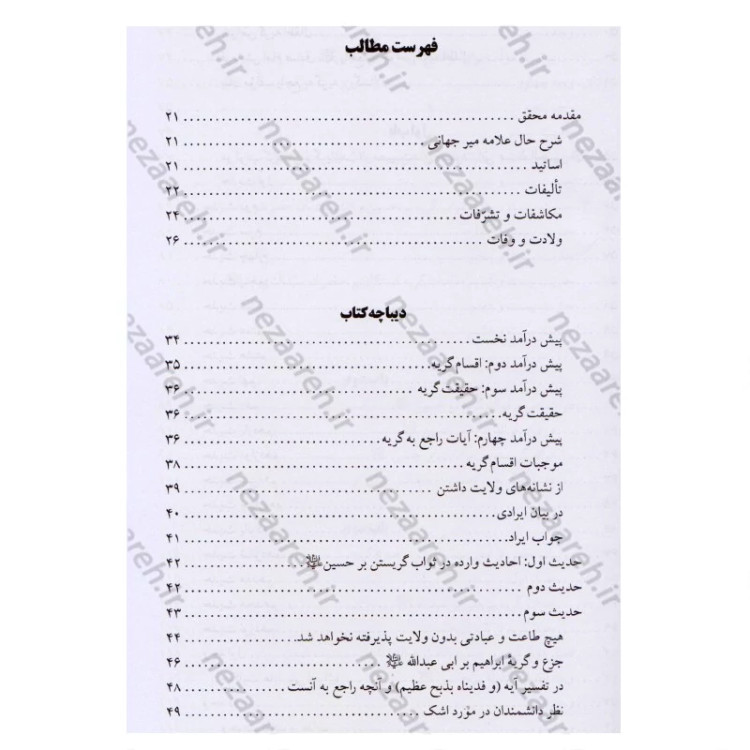 فهرست مطالب
مقدمه محقق ........ ۲۱
شرح حال علامه میر جهانی ........ ۲۱
اساتید ........ ۲۱
تألیفات ........ ۲۲
مکاشفات و تشرّفات ........ ۲۴
ولادت و وفات ........ ۲۶
دیباچه کتاب
پیش درآمد نخست ........ ۳۴
پیش درآمد دوم: اقسام گریه ........ ۳۵
پیش درآمد سوم: حقیقت گریه ........ ۳۶
حقیقت گریه ........ ۳۶
پیش درآمد چهارم: آیات راجع به گریه ........ ۳۶
موجبات اقسام گریه ........ ۳۸
از نشانه‌های ولایت داشتن ........ ۳۹
در بیان ایرادی ........ ۴۰
جواب ایراد ........ ۴۱
حدیث اول: احادیث وارده در ثواب گریستن بر حسین ........ ۴۲
حدیث دوم ........ ۴۲
حدیث سوم ........ ۴۳
هیچ طاعت و عبادتی بدون ولایت پذیرفته نخواهد شد ........ ۴۴
جزع و گریهٔ ابراهیم بر ابی عبدالله ........ ۴۶
در تفسیر آیه (و فدیناه بذبح عظیم) و آنچه راجع به آنست ........ ۴۸
نظر دانشمندان در مورد اشک ........ ۴۹
nezaareh.ir